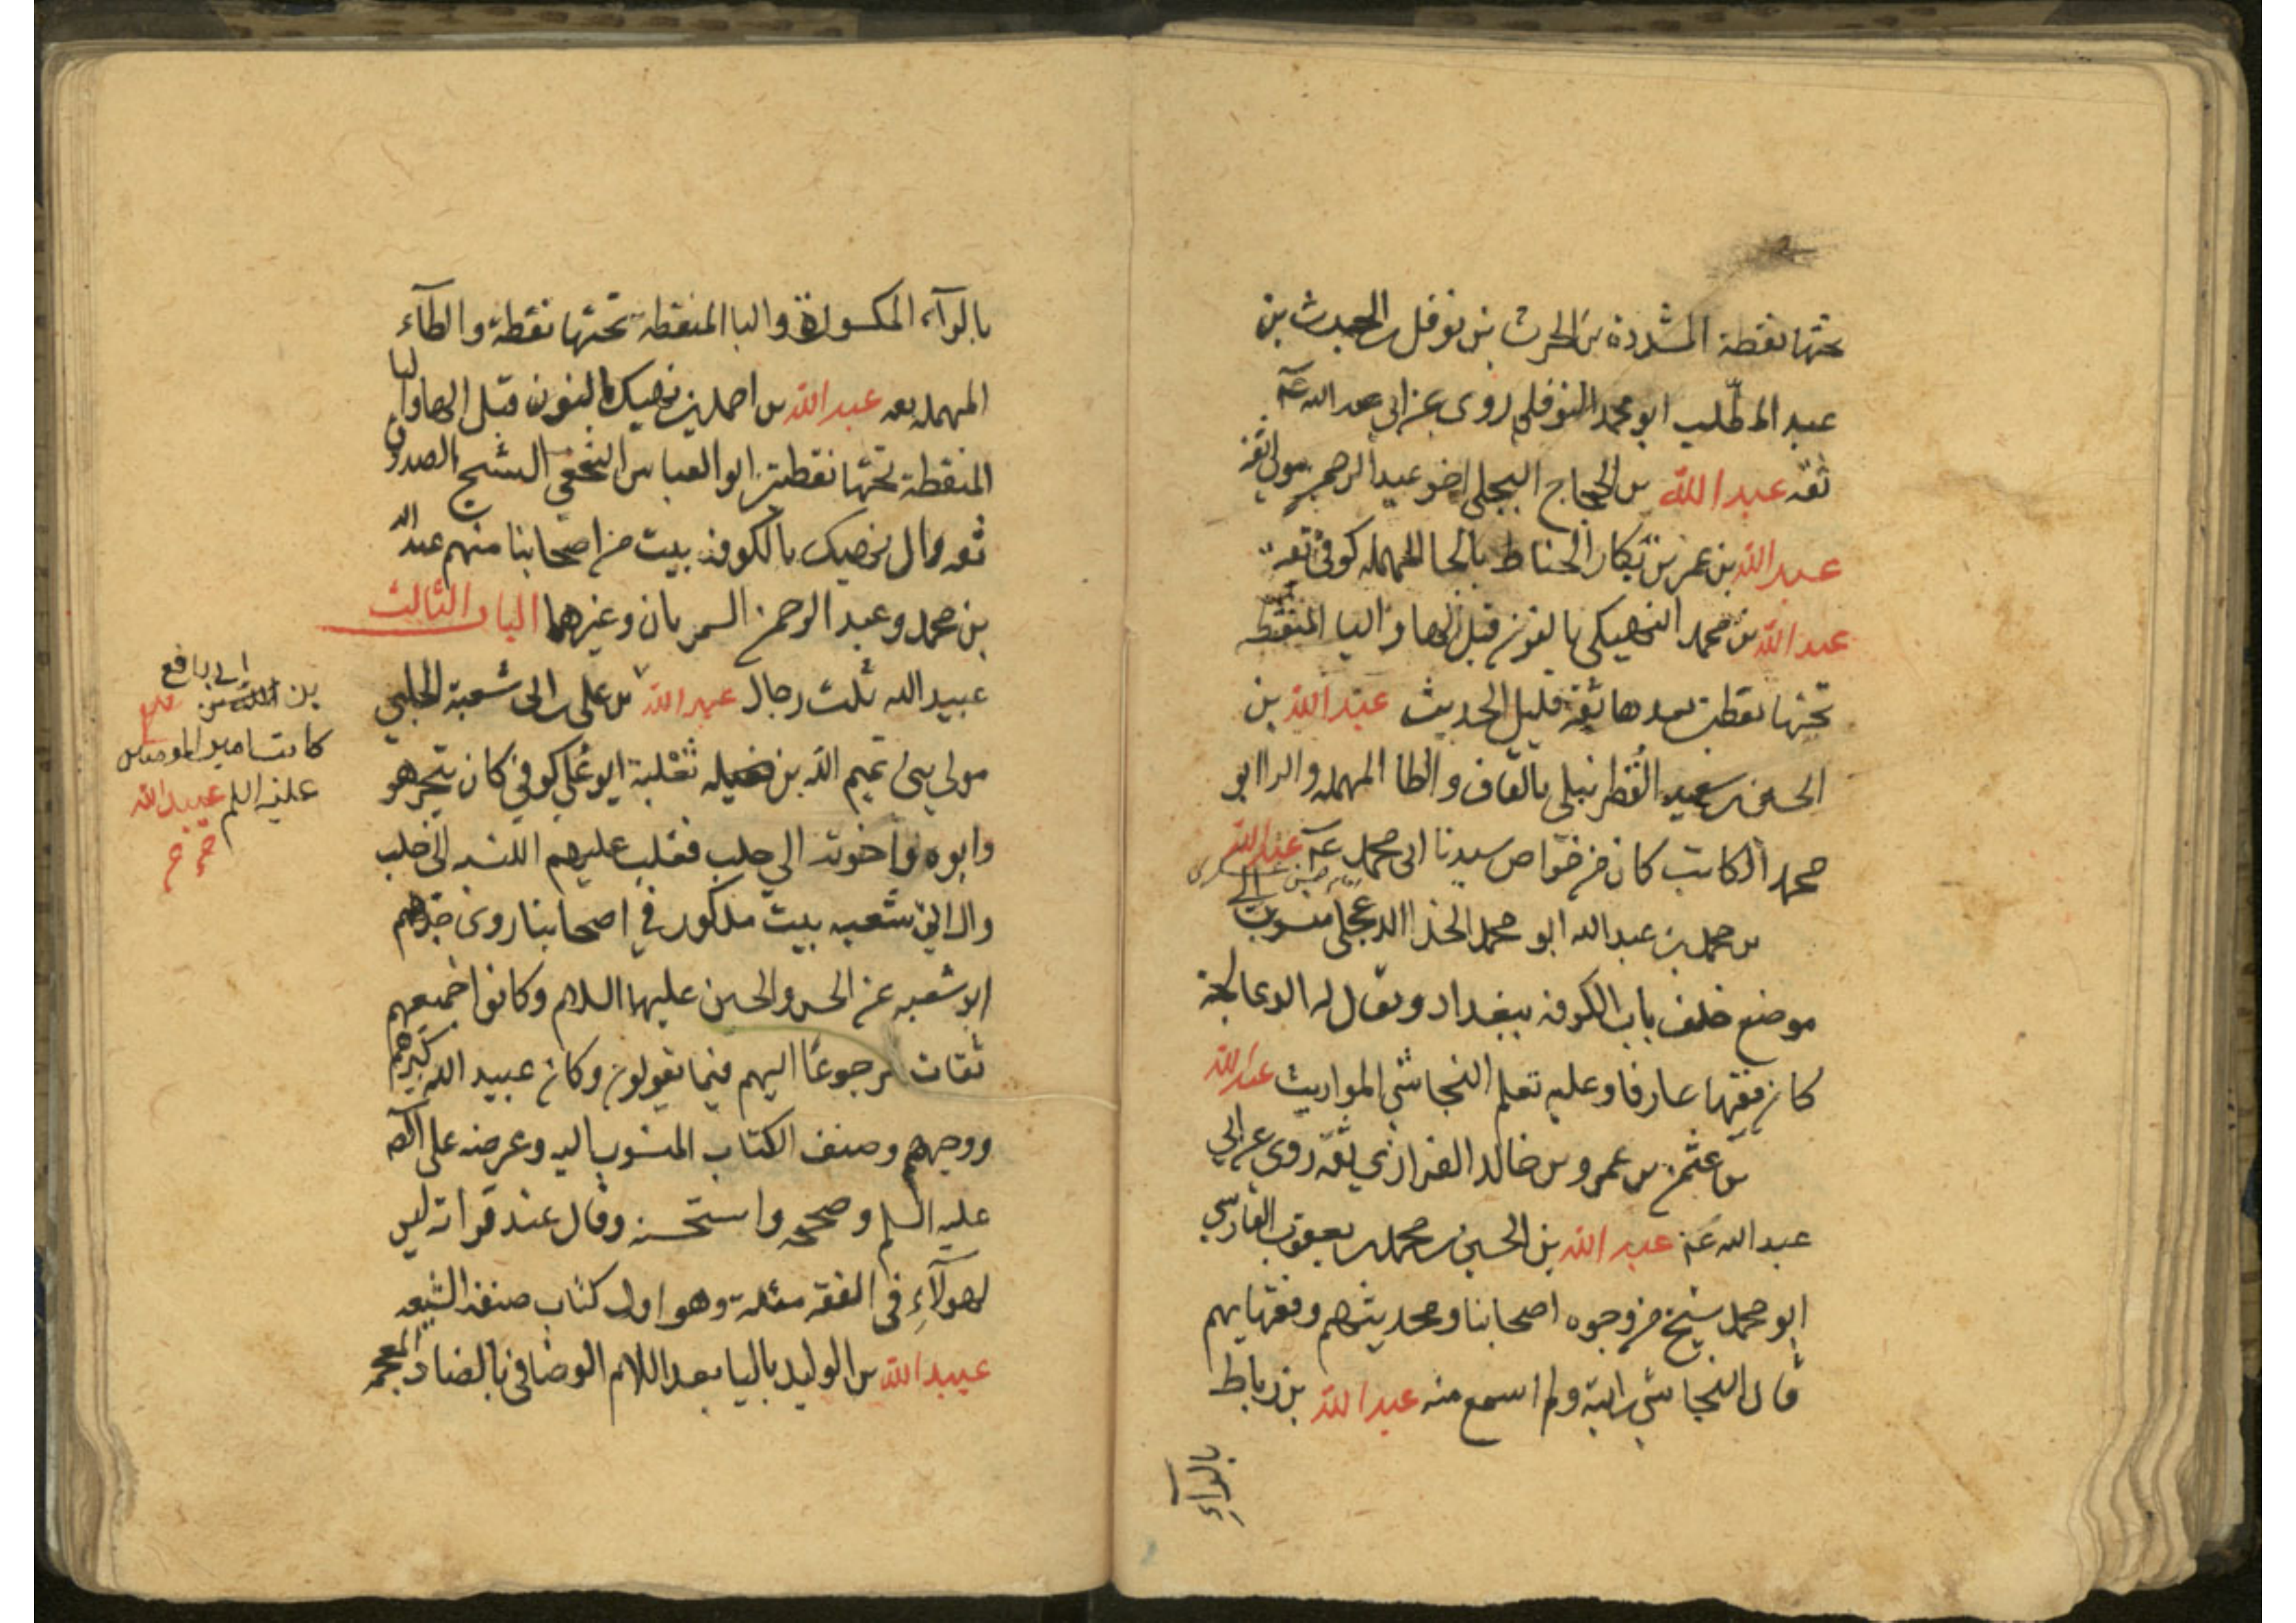 تحتها نقطة المشددة بن الحرث بن نوفل بن الحرث بن
عبد المطلب ابو محمد النوفلي روى عن ابي عبد الله عـ
ثقه عبد الله بن الحجاج البجلي اخو عبد الرحمن مولى ثقة
عبد الله بن عمر بن بكار الحناط بالحا المهمله كوفي ثقة
عبد الله بن محمد النهيكي بالنون قبل الها واليا المنقطة
تحتها نقطتين بعدها ثقة قليل الحديث عبد الله بن
الحسين بن سعيد القطربلي بالقاف والطا المهمله والرا ابو
محمد الكاتب كان من خواص سيدنا ابى محمد عـ عبد الله
بن محمد بن عبد الله ابو محمد الحذا الدعجلى منسوب الى
موضع خلف باب الكوفه ببغداد ويقال له الدعالجة
كان فقيها عارفا وعليه تعلم النجاشي المواريث عبد الله
بن عثمن بن عمرو بن خالد الفزاري ثقة روى عن ابي
عبد الله عـ عبد الله بن الحسين بن محمد بن يعقوب الفارسي
ابو محمد شيخ من وجوه اصحابنا ومحديثهم وفقهايهم
قال النجاشي رايته ولم اسمع منه عبد الله بن رباط
بالرآءِ
بالرآء المكسورة والبا المنقطة تحتها نقطة والطآء
المهمله ثقه عبد الله بن احمد بن نهيك بالنون قبل الها واليا
المنقطة تحتها نقطتين ابو العباس النخعي الشيخ الصدوق
ثقه وال نهيك بالكوفة بيت من اصحابنا منهم عبد الله
بن محمد وعبد الرحمن السمريان وغيرهما الباب الثالث
عبيد الله ثلث رجال عبيد الله بن على بن ابى شعبة الحلبي
مولى بنى تميم الله بن ثعلبة ابو علي كوفي كان يتجر هو
وابوه واخوته الى حلب فغلب عليهم النسبه الى حلب
وال ابي شعبه بيت مذكور في اصحابنا روى جدهم
ابو شعبه عن الحسن والحسين عليهما السلام وكانوا جميعهم
ثقات مرجوعا اليهم فيما يقولون وكان عبيد الله كبيرهم
ووجههم وصنف الكتاب المنسوب اليه وعرضه على الصـ
عليه السلم وصححه واستحسنه وقال عند قراته ليس
لهولآءِ في الفقه مثله وهو اول كتاب صنفه الشيعه
عبيد الله بن الوليد باليا بعد اللام الوضافي بالضاد المعجمه
بن ابى رافع
كاتب امير المومنين
عليه السلم عبيد الله